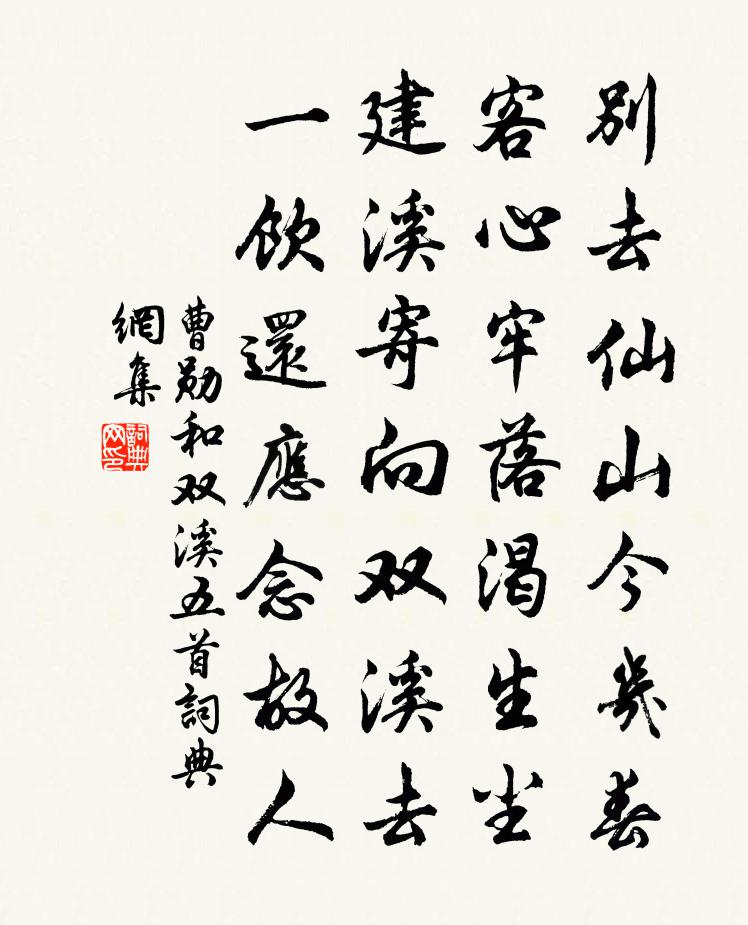 別去仙山今幾春
客心牢落渴生尘
建溪寄向双溪去
一飲還應念故人
曹勛和双溪五首詞典
網集
詞典网印